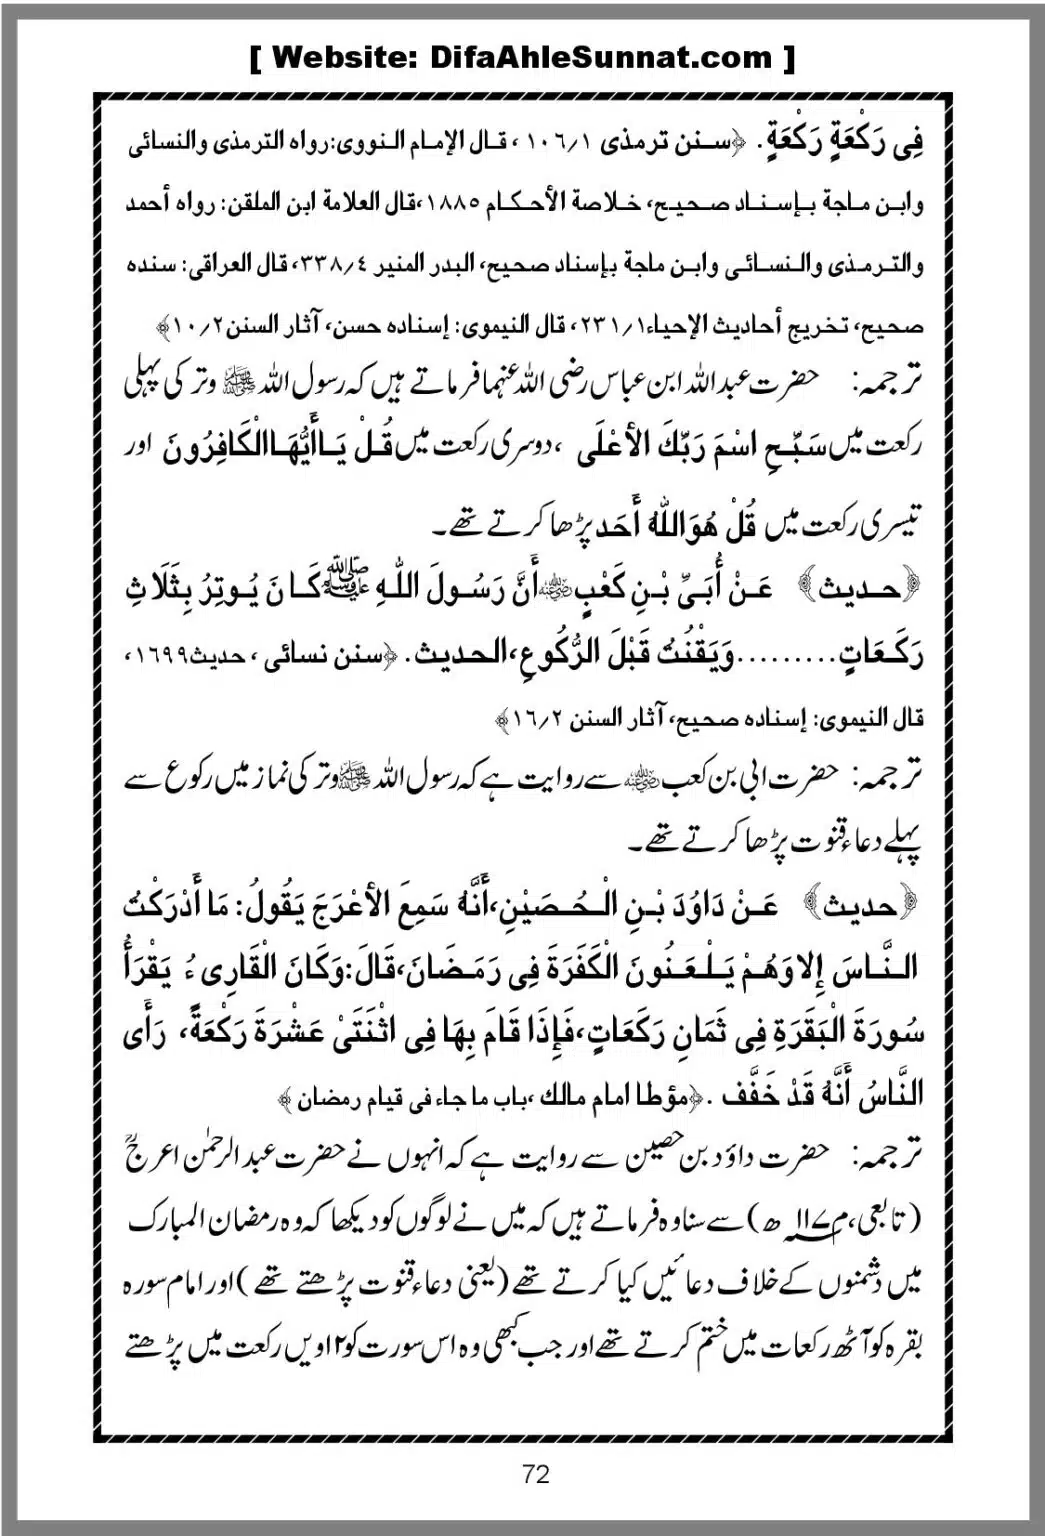 [ Website: DifaAhleSunnat.com ]
فِی رَکْعَةٍ رَکْعَةٍ. ﴿سنن ترمذی ۱؍۱۰۶، قال الإمام النووی:رواه الترمذی والنسائی
وابن ماجة بإسناد صحیح، خلاصة الأحکام ۱۸۸۵،قال العلامة ابن الملقن: رواه أحمد
والترمذی والنسائی وابن ماجة بإسناد صحیح، البدر المنیر ۴؍۳۳۸، قال العراقی: سنده
صحیح، تخریج أحادیث الإحیاء۱؍۲۳۱، قال النیموی: إسناده حسن، آثار السنن۲؍۱۰﴾
ترجمہ: حضرت عبداللہ ابن عباس رضی اللہ عنہما فرماتے ہیں کہ رسول اللہ ﷺ وتر کی پہلی
رکعت میں سَبِّحِ اسْمَ رَبِّكَ الأعْلَی ، دوسری رکعت میں قُلْ یَاأَیُّهَاالْکَافِرُونَ اور
تیسری رکعت میں قُلْ هُوَاللّٰهُ أَحَد پڑھا کرتے تھے۔
﴿حدیث﴾ عَنْ أُبَیِّ بْنِ کَعْبٍ رضی اللہ عنہ أَنَّ رَسُولَ اللّٰهِ ﷺ کَانَ یُوتِرُ بِثَلَاثِ
رَکَعَاتٍ.........وَیَقْنُتُ قَبْلَ الرُّکُوعِ،الحدیث. ﴿سنن نسائی ، حدیث۱۶۹۹،
قال النیموی: إسناده صحیح، آثار السنن ۲؍۱۶﴾
ترجمہ: حضرت ابی بن کعب رضی اللہ عنہ سے روایت ہے کہ رسول اللہ ﷺ وتر کی نماز میں رکوع سے
پہلے دعاء قنوت پڑھا کرتے تھے۔
﴿حدیث﴾ عَنْ دَاوُدَ بْنِ الْحُصَیْنِ،أَنَّهُ سَمِعَ الأعْرَجَ یَقُولُ: مَا أَدْرَکْتُ
النَّاسَ إِلا وَهُمْ یَلْعَنُونَ الْکَفَرَةَ فِی رَمَضَانَ،قَالَ:وَکَانَ الْقَارِیءُ یَقْرَأُ
سُورَةَ الْبَقَرَةِ فِی ثَمَانِ رَکَعَاتٍ،فَإِذَا قَامَ بِهَا فِی اثْنَتَیْ عَشْرَةَ رَکْعَةً، رَأَی
النَّاسُ أَنَّهُ قَدْ خَفَّفَ .﴿مؤطا امام مالك ،باب ما جاء فی قیام رمضان ﴾
ترجمہ: حضرت داؤد بن حصین سے روایت ہے کہ انہوں نے حضرت عبدالرحمٰن اعرجؒ
(تابعی،م ۱۱۷ھ) سے سنا وہ فرماتے ہیں کہ میں نے لوگوں کو دیکھا کہ وہ رمضان المبارک
میں دشمنوں کے خلاف دعائیں کیا کرتے تھے (یعنی دعاء قنوت پڑھتے تھے) اور امام سورہ
بقرہ کو آٹھ رکعات میں ختم کرتے تھے اور جب کبھی وہ اس سورت کو ۱۲ویں رکعت میں پڑھتے
72